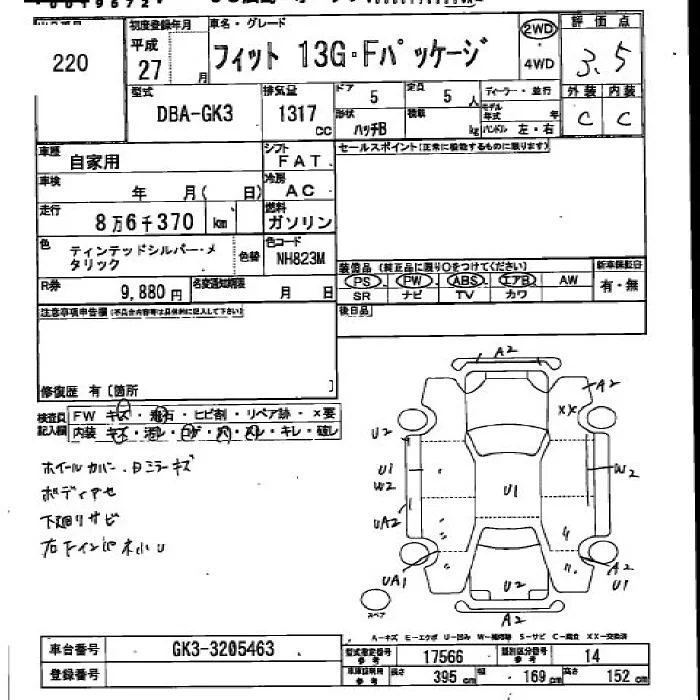 初度登録年月 車名・グレード 評価点
220 平成 27 月 フィット 13G・Fパッケージ 2WD 4WD 3.5
型式 排気量 ドア 5 定員 5 人 ディーラー・並行 外装 内装
DBA-GK3 1317 cc 形状 ハッチB 積載 kg モデル年式 年 ハンドル 左・右 C C
車歴 自家用 シフト FAT セールスポイント(正常に機能するものに限ります)
車検 年 月( 日) 冷房 AC
走行 8万6千370 km 燃料 ガソリン
色 ティンテッドシルバー・メタリック 色替 色コード NH823M
装備品(純正品に限り○をつけてください) 新車保証書
R券 9,880円 名変通知期限 月 日 PS PW ABS エアB AW 有・無
SR ナビ TV カワ
注意事項申告欄(不具合内容等は具体的に記入して下さい) 後日品
修復歴 有〔箇所 〕
検査員記入欄 FW キズ・飛石・ヒビ割・リペア跡・×要
内装 キズ・汚レ・コゲ・穴・スレ・キレ・破レ
ホイールカバー・日ミラーキズ
ボディアセ
下廻りサビ
A2
A2
XX
U2
U1
W2
W2
U1
UA2
UA1
A2
U1
U2
A2
スペア
A-キズ E-エクボ U-凹み W-補修跡 S-サビ C-腐食 XX-交換済
車台番号 GK3-3205463
型式指定番号 参考 17566 類別区分番号 参考 14
登録番号 車庫証明用 参考 長さ 395 cm 幅 169 cm 高さ 152 cm